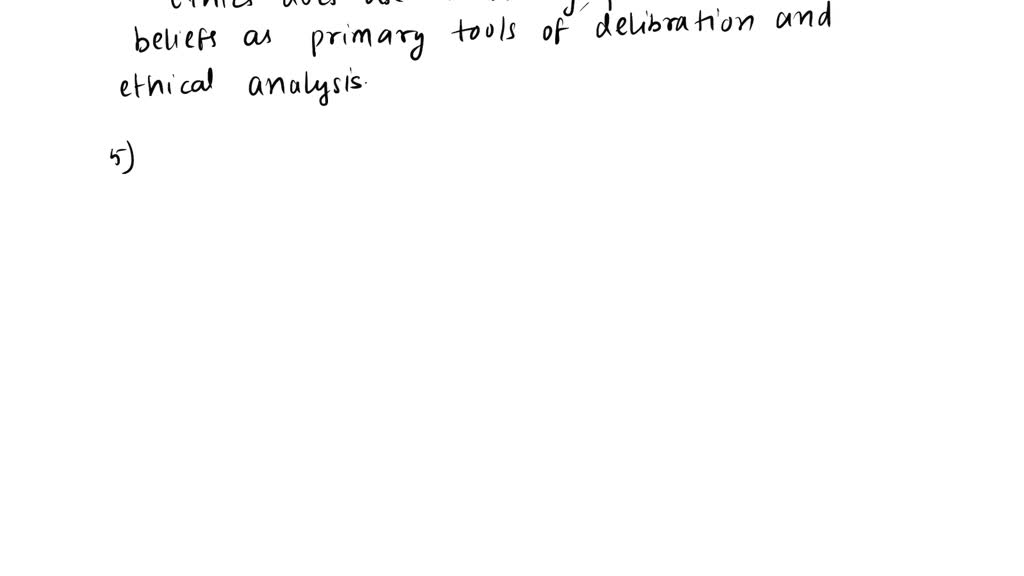 beliefs as primary tools of delibration and
ethical analysis.
5)